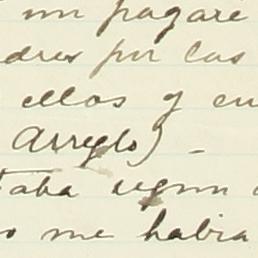 un pagaré
dres por las
ellos y en
Arreglo) -
taba segun
o me habia